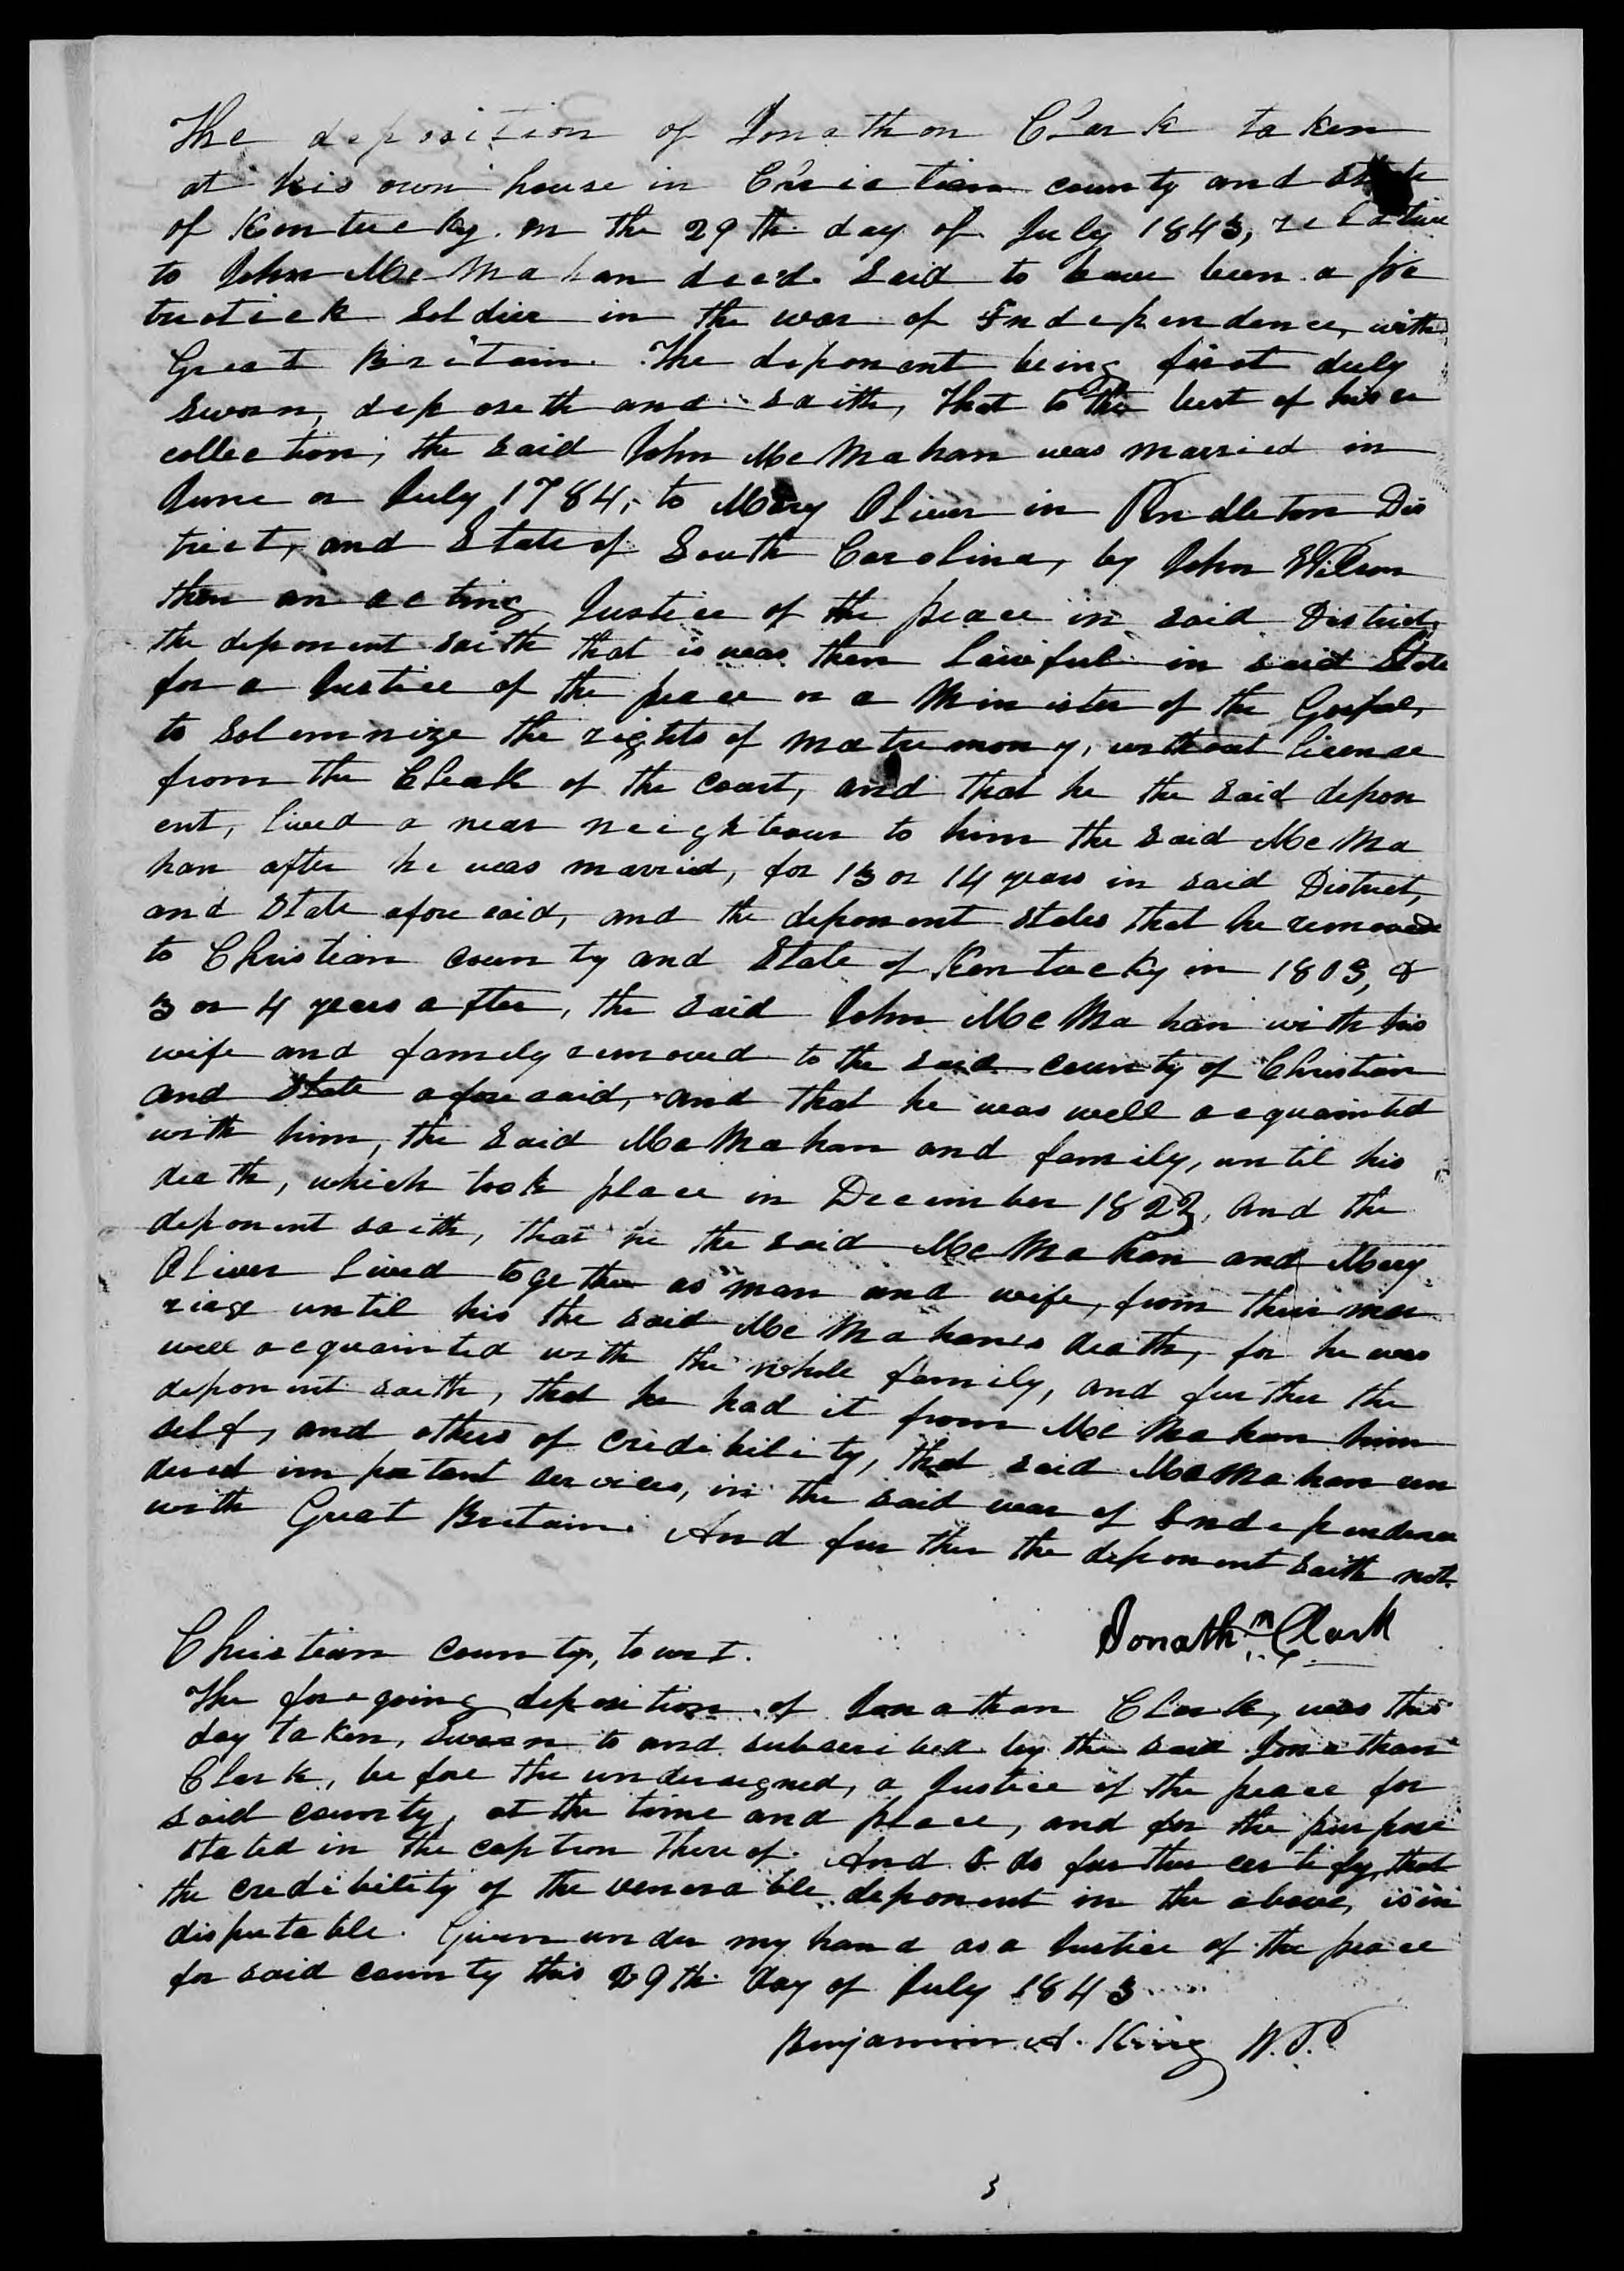 The deposition of Jonathan Clark taken
at his own house in Christian county and State
of Kentucky on the 29th day of July 1843, relative
to John McMahan decd. said to have been a pa
triotick soldier in the war of Independence, with
Great Britain. The deponent being first duly
sworn, deposeth and saith, that to the best of his re
collection, the said John McMahan was married in
June or July 1784, to Mary Oliver in Pendleton Dis
trict, and State of South Carolina, by John Wilson
then an acting Justice of the peace in said District,
the deponent saith that is was then lawful in said State
for a Justice of the peace or a Minister of the Gospel,
to solemnize the rights of matremony, without license
from the Cleak of the court, and that he the said depon
ent, lived a near neighbour to him the said McMa
han after he was married, for 13 or 14 years in said District,
and State aforesaid, and the deponent states that he removed
to Christian county and State of Kentucky in 1803, &
3 or 4 years after, the said John McMahan with his
wife and family removed to the said county of Christian
and State aforesaid, and that he was well acquainted
with him, the said McMahan and family, until his
death, which took place in December 1822, and the
deponent saith, that he the said McMahan and Mary
Oliver lived together as man and wife, from their mar
riage until his the said McMahan's death, for he was
well acquainted with the whole family, and further the
deponent saith, that he had it from McMahan him
self, and others of credibility, that said McMahan ren
dered important services, in the said war of Independence
with Great Britain. And further the deponent saith not.
Jonathn Clark
Christian county, to wit.
The foregoing deposition of Jonathan Clark, was this
day taken, sworn to and subscribed by the said Jonathan
Clark, before the undersigned, a Justice of the peace for
said county, at the time and place, and for the purpose
stated in the caption thereof. And I do further certify, that
the credibility of the venerable deponent in the above, is in
disputable. Given under my hand as a Justice of the peace
for said county this 29th day of July 1843
Benjamin A. King J.P.
3